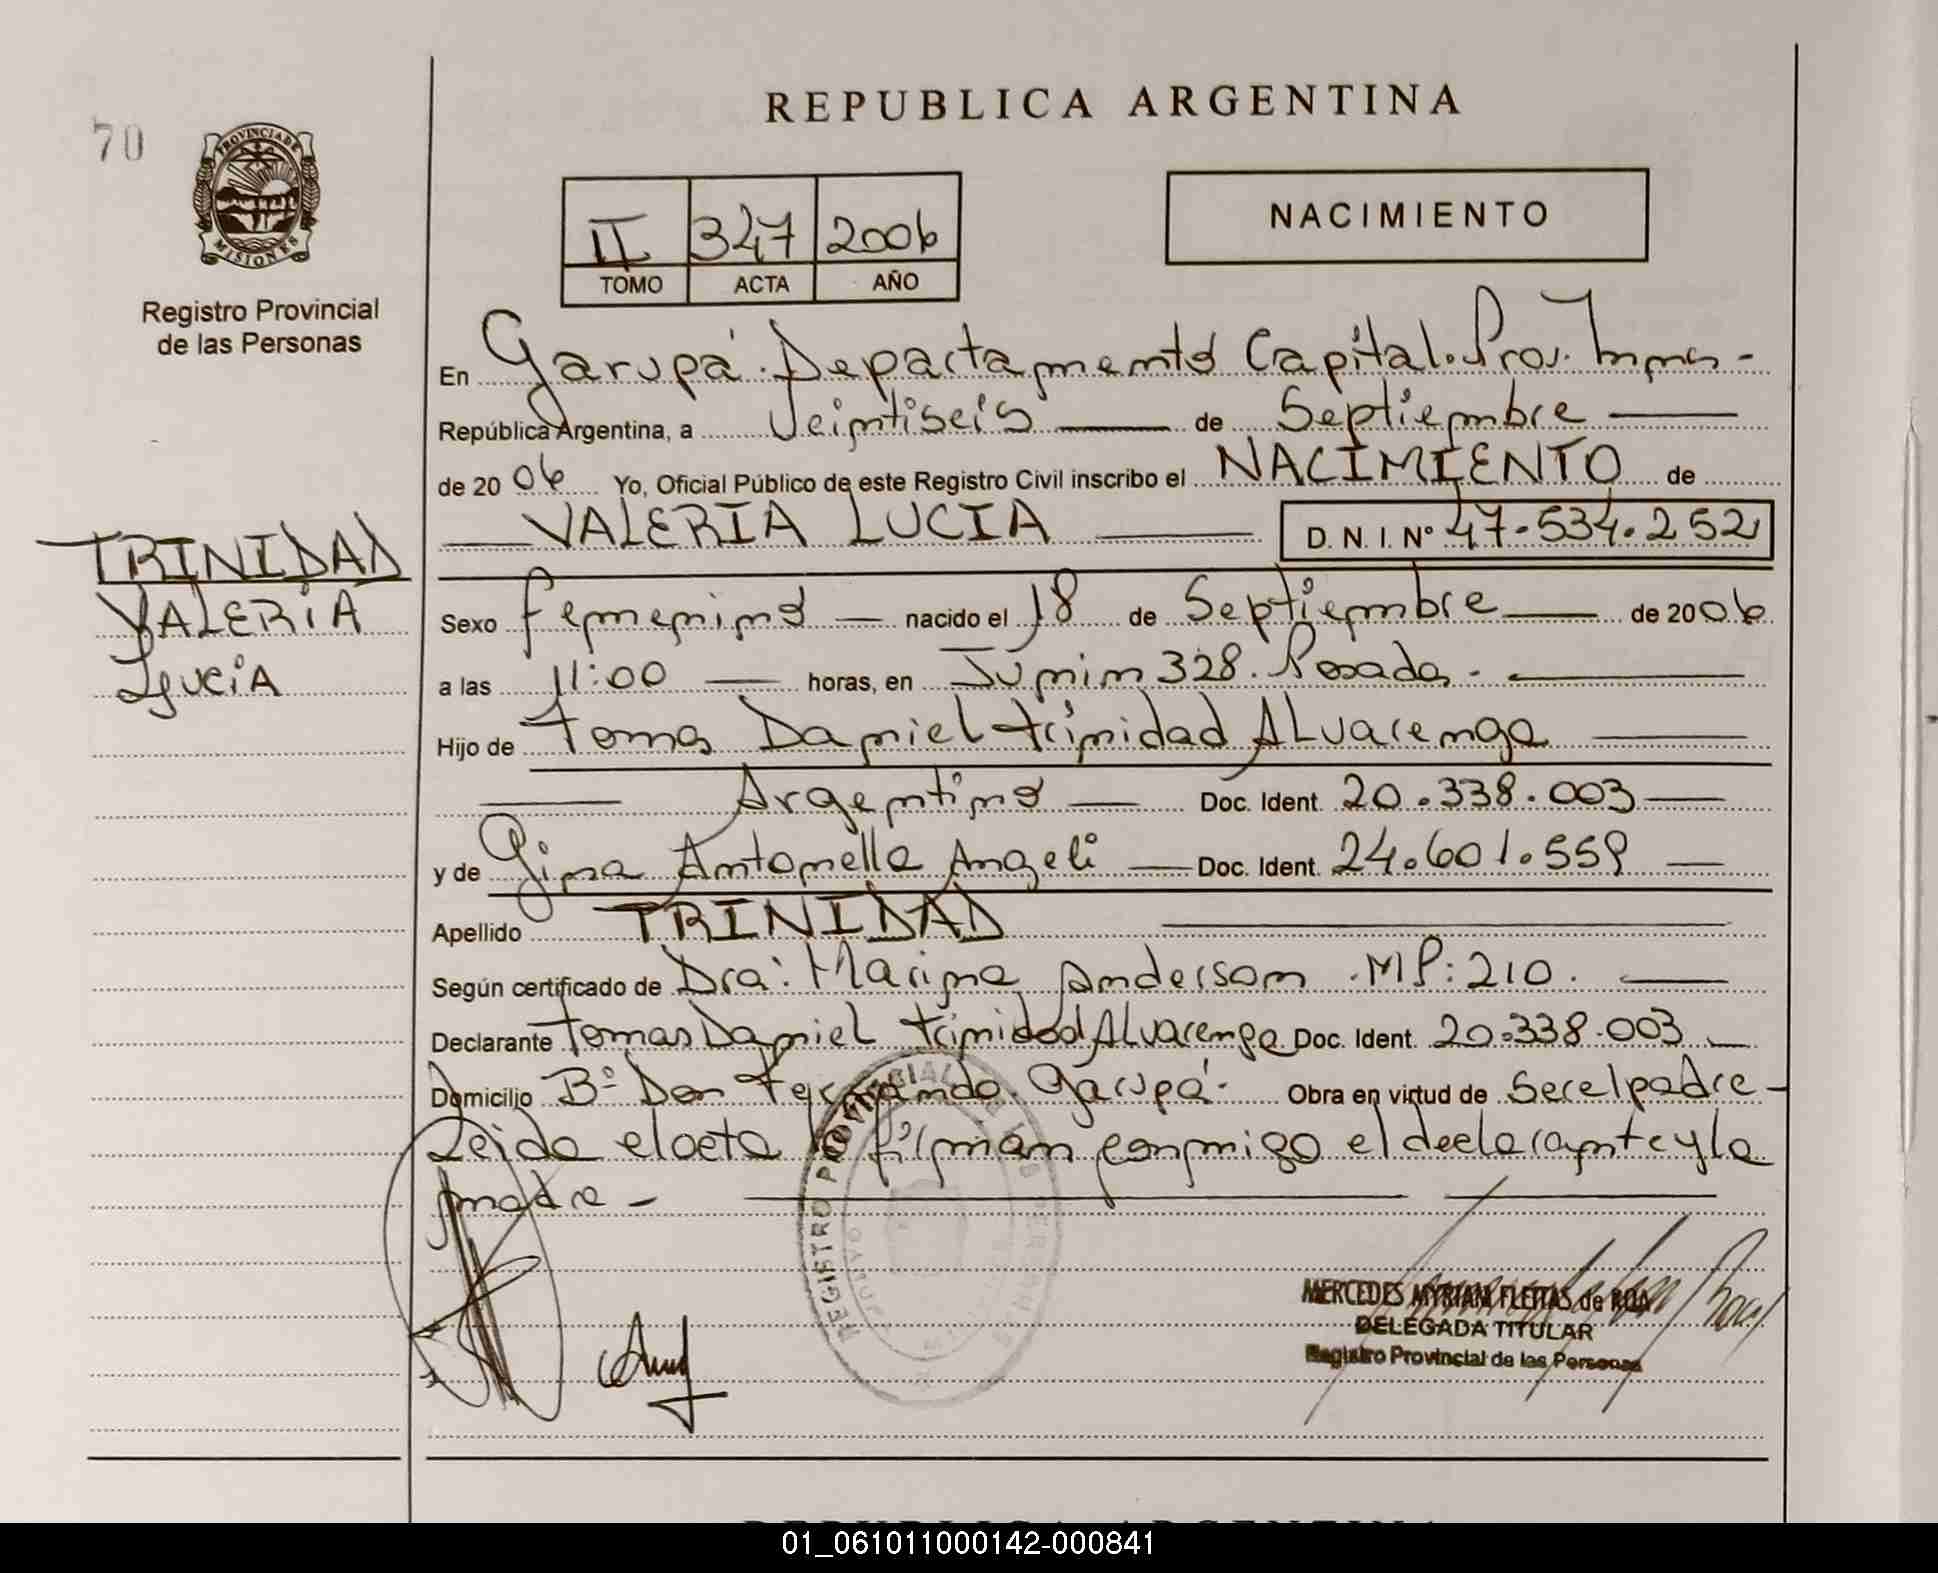 REPUBLICA ARGENTINA
70
PROVINCIA DE MISIONES
Registro Provincial
de las Personas
II 327 2006
TOMO ACTA AÑO
NACIMIENTO
En Garupá. Departamento Capital. Prov. Mnes -
República Argentina, a Veintiseis de Septiembre
de 2006 Yo, Oficial Público de este Registro Civil inscribo el NACIMIENTO de
VALERIA LUCIA D. N. I. Nº 47.534.252
TRINIDAD
VALERIA
Lucia
Sexo femenino nacido el 18 de Septiembre de 2006
a las 11:00 horas, en Junin 328. Posadas.
Hijo de Tomas Daniel trinidad Alvarenga
Argentino Doc. Ident. 20.338.003
y de Gina Antonella Angeli Doc. Ident. 24.601.559
Apellido TRINIDAD
Según certificado de Dra: Marina Anderson. MP: 210.
Declarante Tomas Daniel trinidad Alvarenga Doc. Ident. 20.338.003
Domicilio Bº Don Fernando Garupá. Obra en virtud de Ser el padre -
Leida el acta la firman conmigo el declarante y la
madre -
REGISTRO PROVINCIAL DE LAS PERSONAS
MERCEDES MYRIAN FLEITAS de ROA
DELEGADA TITULAR
Registro Provincial de las Personas
REPUBLICA ARGENTINA
01_061011000142-000841